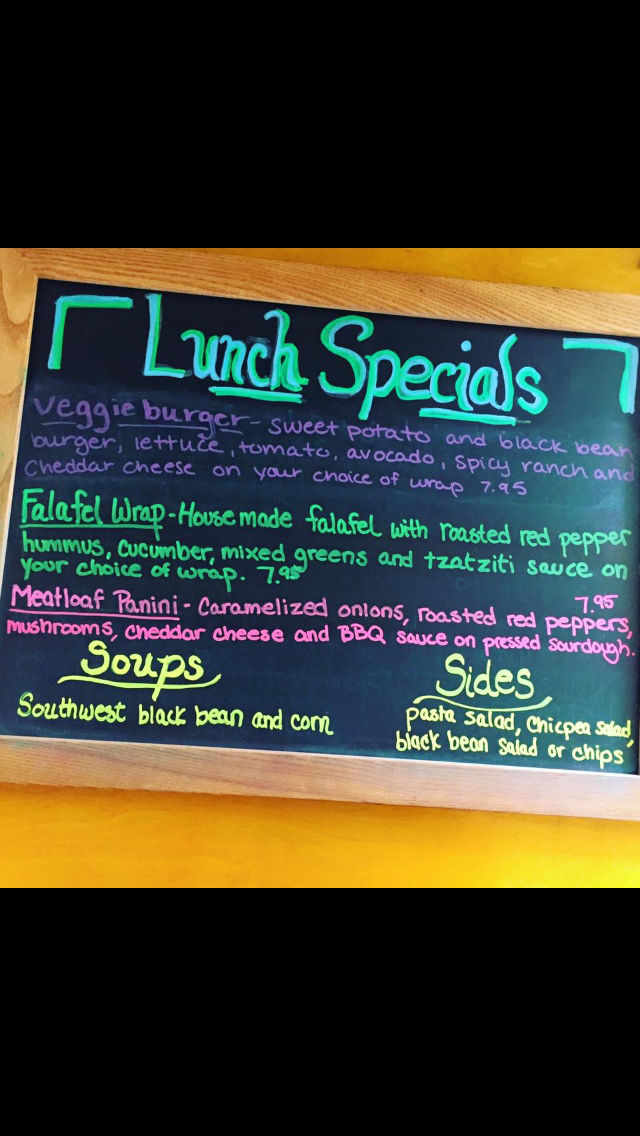 Lunch Specials
Veggie burger - sweet potato and black bean
burger, lettuce, tomato, avocado, spicy ranch and
Cheddar cheese on your choice of wrap 7.95
Falafel Wrap - House made falafel with roasted red pepper
hummus, cucumber, mixed greens and tzatziti sauce on
your choice of wrap. 7.95
7.95
Meatloaf Panini - Caramelized onions, roasted red peppers,
mushrooms, cheddar cheese and BBQ sauce on pressed sourdough.
Soups
Southwest black bean and corn
Sides
pasta salad, chicpea salad,
black bean salad or chips